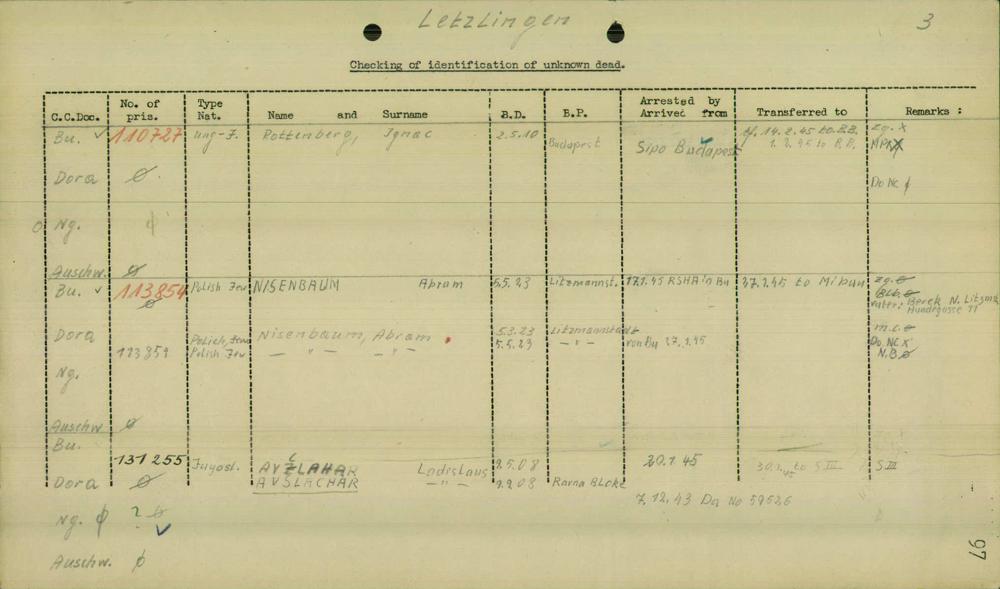 Letzlingen 3
Checking of identification of unknown dead.
C.C.Doc. No. of pris. Type Nat. Name and Surname B.D. B.P. Arrested by Arrived from Transferred to Remarks :
Bu. ✓ 110727 ung-J. Rottenberg, Ignac 2.5.10 Budapest Sipo Budapest 14.2.45 to B.B. zg. x
1. 2. 45 to B.B.
Dora Ø Do Nc ϕ
Ng. ϕ
Auschw. Ø
Bu. ✓ 113854 Polish Jew NISENBAUM Abram 5.5.23 Litzmannst. 17.1.45 RSHA in Bu 27.1.45 to Mibau zg. Ø
Ø Vater: Berek N. Litzm.
Hundegasse 11
Dora Nisenbaum, Abram 5.3.23 Litzmannstadt m.c. Ø
113854 Polish Jew — " — — " — 5.5.23 — " — von Bu 27.1.45 Do. NC x
N.B Ø
Ng.
Auschw. Ø
Bu.
131255 Jugosl. AVZLAHAR Ladislaus 2.5.08 20.1.45 30.1.45 to S III S III
Dora Ø AVSLACHAR — " — 1.9.08 Ravna
7.12.43 Da No 59526
Ng. ϕ ? Ø
✓
Auschw. ϕ
97